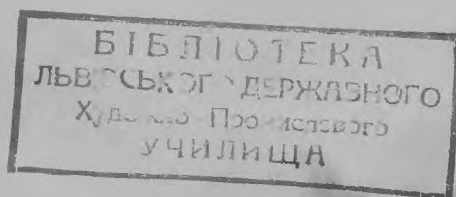 БІБЛІОТЕКА
ЛЬВІВСЬКОГО ДЕРЖАВНОГО
Художньо-Промислового
УЧИЛИЩА